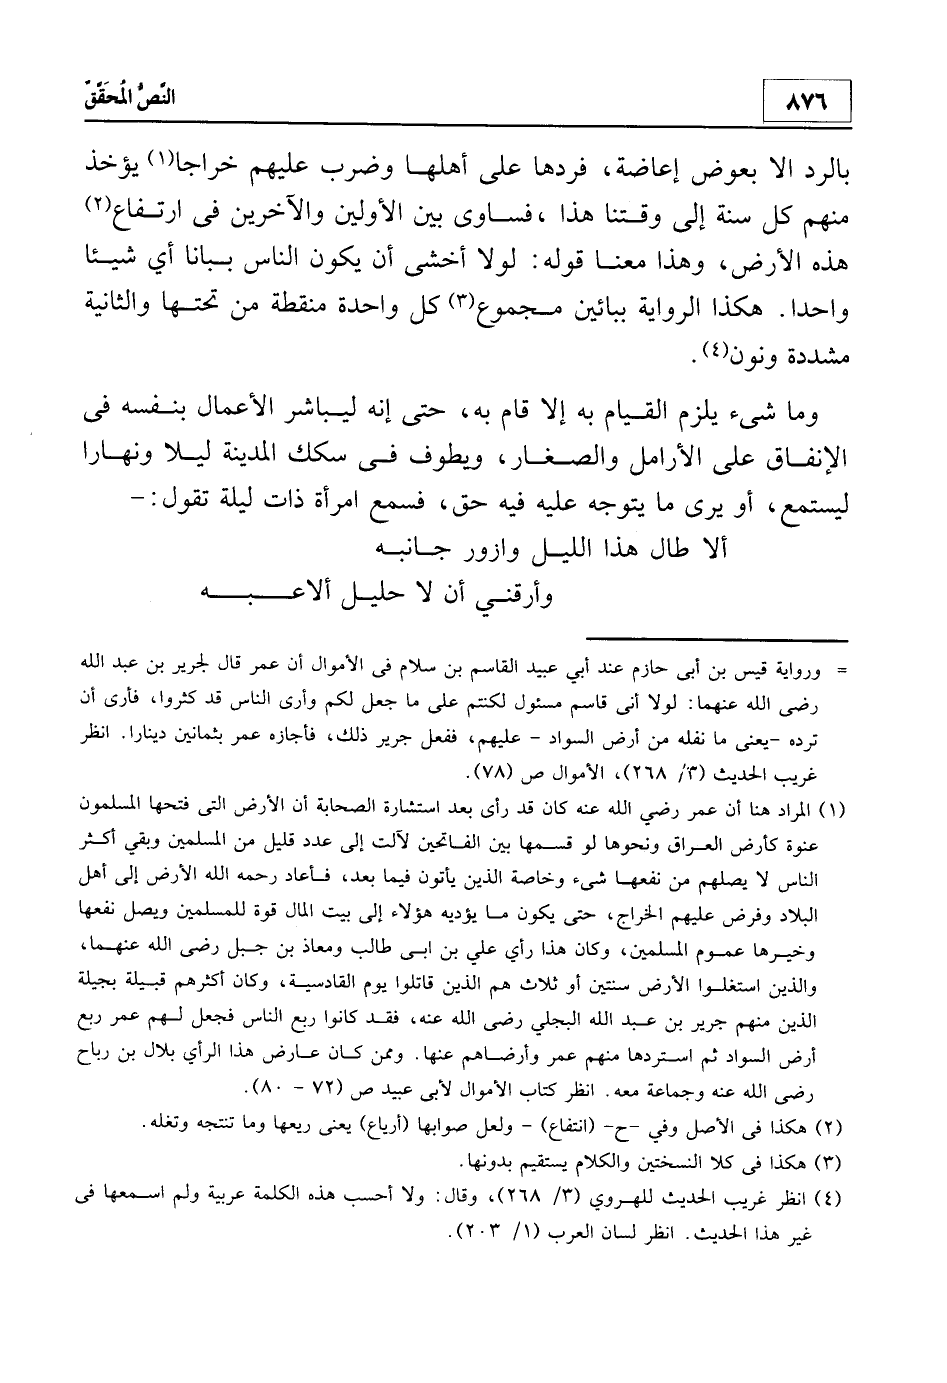 ٨٧٦
النَّصُّ المُحَقَّقُ
بالرد الا بعوض إعاضة، فردها على أهلها وضرب عليهم خراجا(١) يؤخذ
منهم كل سنة إلى وقتنا هذا ،فساوى بين الأولين والآخرين فى ارتفاع(٢)
هذه الأرض، وهذا معنا قوله: لولا أخشى أن يكون الناس ببانا أي شيئا
واحدا. هكذا الرواية ببائين مجموع(٣) كل واحدة منقطة من تحتها والثانية
مشددة ونون(٤).
وما شىء يلزم القيام به إلا قام به، حتى إنه ليباشر الأعمال بنفسه فى
الإنفاق على الأرامل والصغار، ويطوف فى سكك المدينة ليلا ونهارا
ليستمع، أو يرى ما يتوجه عليه فيه حق، فسمع امرأة ذات ليلة تقول:-
ألا طال هذا الليل وازور جانبه
وأرقني أن لا حليل ألاعبه
= ورواية قيس بن أبى حازم عند أبي عبيد القاسم بن سلام فى الأموال أن عمر قال لجرير بن عبد الله
رضى الله عنهما: لولا أنى قاسم مسئول لكنتم على ما جعل لكم وأرى الناس قد كثروا، فأرى أن
ترده -يعنى ما نفله من أرض السواد - عليهم، ففعل جرير ذلك، فأجازه عمر بثمانين دينارا. انظر
غريب الحديث (٣/ ٢٦٨)، الأموال ص (٧٨).
(١) المراد هنا أن عمر رضي الله عنه كان قد رأى بعد استشارة الصحابة أن الأرض التى فتحها المسلمون
عنوة كأرض العراق ونحوها لو قسمها بين الفاتحين لآلت إلى عدد قليل من المسلمين وبقي أكثر
الناس لا يصلهم من نفعها شىء وخاصة الذين يأتون فيما بعد، فأعاد رحمه الله الأرض إلى أهل
البلاد وفرض عليهم الخراج، حتى يكون ما يؤديه هؤلاء إلى بيت المال قوة للمسلمين ويصل نفعها
وخيرها عموم المسلمين، وكان هذا رأي علي بن ابى طالب ومعاذ بن جبل رضى الله عنهما،
والذين استغلوا الأرض سنتين أو ثلاث هم الذين قاتلوا يوم القادسية، وكان أكثرهم قبيلة بجيلة
الذين منهم جرير بن عبد الله البجلي رضى الله عنه، فقد كانوا ربع الناس فجعل لهم عمر ربع
أرض السواد ثم استردها منهم عمر وأرضاهم عنها. وممن كان عارض هذا الرأي بلال بن رباح
رضى الله عنه وجماعة معه. انظر كتاب الأموال لأبى عبيد ص (٧٢ - ٨٠).
(٢) هكذا فى الأصل وفي -ح- (انتفاع) - ولعل صوابها (أرياع) يعنى ريعها وما تنتجه وتغله.
(٣) هكذا فى كلا النسختين والكلام يستقيم بدونها.
(٤) انظر غريب الحديث للهروي (٣/ ٢٦٨)، وقال: ولا أحسب هذه الكلمة عربية ولم اسمعها فى
غير هذا الحديث. انظر لسان العرب (١/ ٢٠٣).